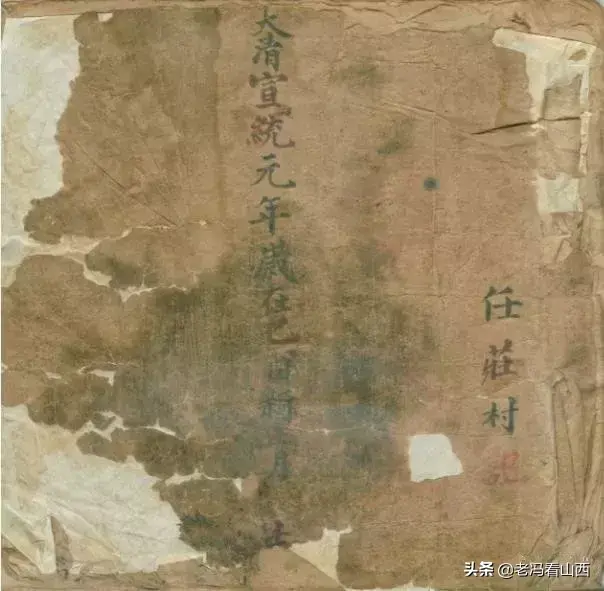 任莊村記
大清宣統元年歲在己酉月
头条 @老冯看山西